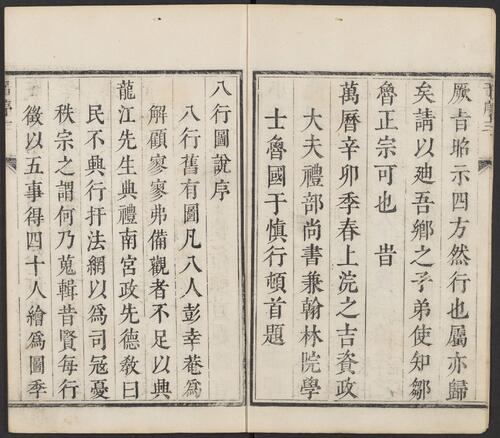 厥旨昭示四方然行也屬亦歸
矣請以廸吾鄉之子弟使知鄒
魯正宗可也 旹
萬曆辛卯季春上浣之吉資政
大夫禮部尚書兼翰林院學
士魯國于慎行頓首題
八行圖說序
八行舊有圖凡八人彭幸菴爲
解顧寥寥弗備觀者不足以興
龍江先生典禮南宮政先德教曰
民不興行扞法網以爲司冦憂
秩宗之謂何乃蒐輯昔賢每行
徵以五事得四十人繪爲圖季